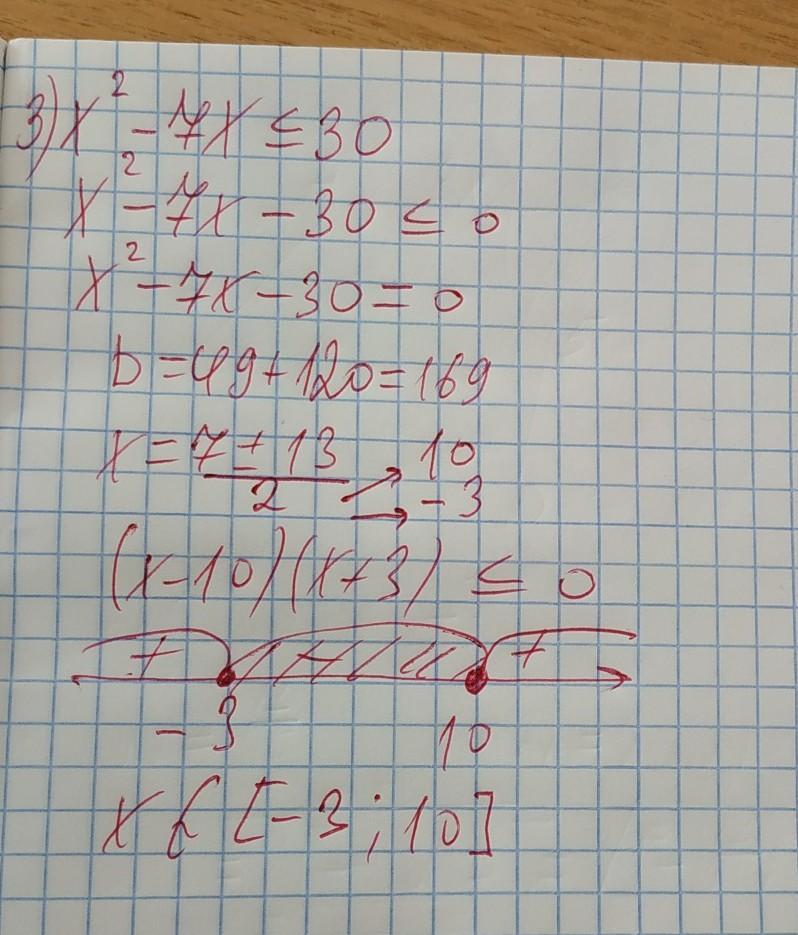 3) x² - 7x ≤ 30
x² - 7x - 30 ≤ 0
x² - 7x - 30 = 0
D = 49 + 120 = 169
x = (7 ± 13)/2 → 10 → -3
(x - 10)(x + 3) ≤ 0
+ - +
-3 10
x ∈ [-3 ; 10]